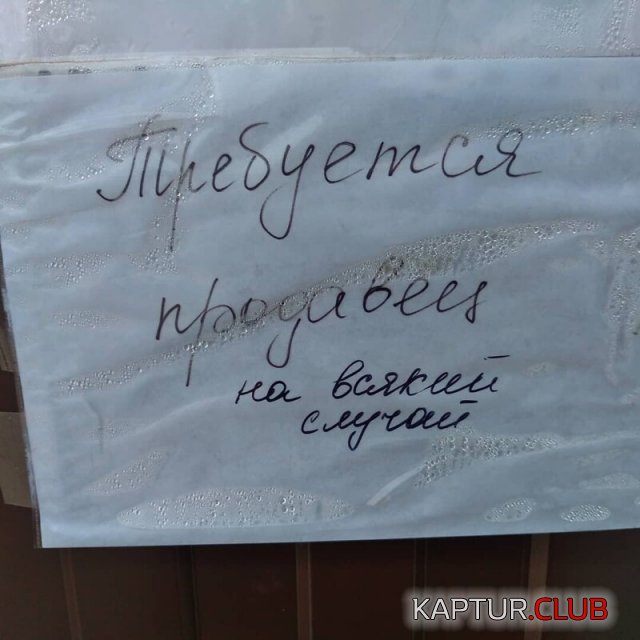 Требуется
продавец
на всякий
случай
KAPTUR.CLUB